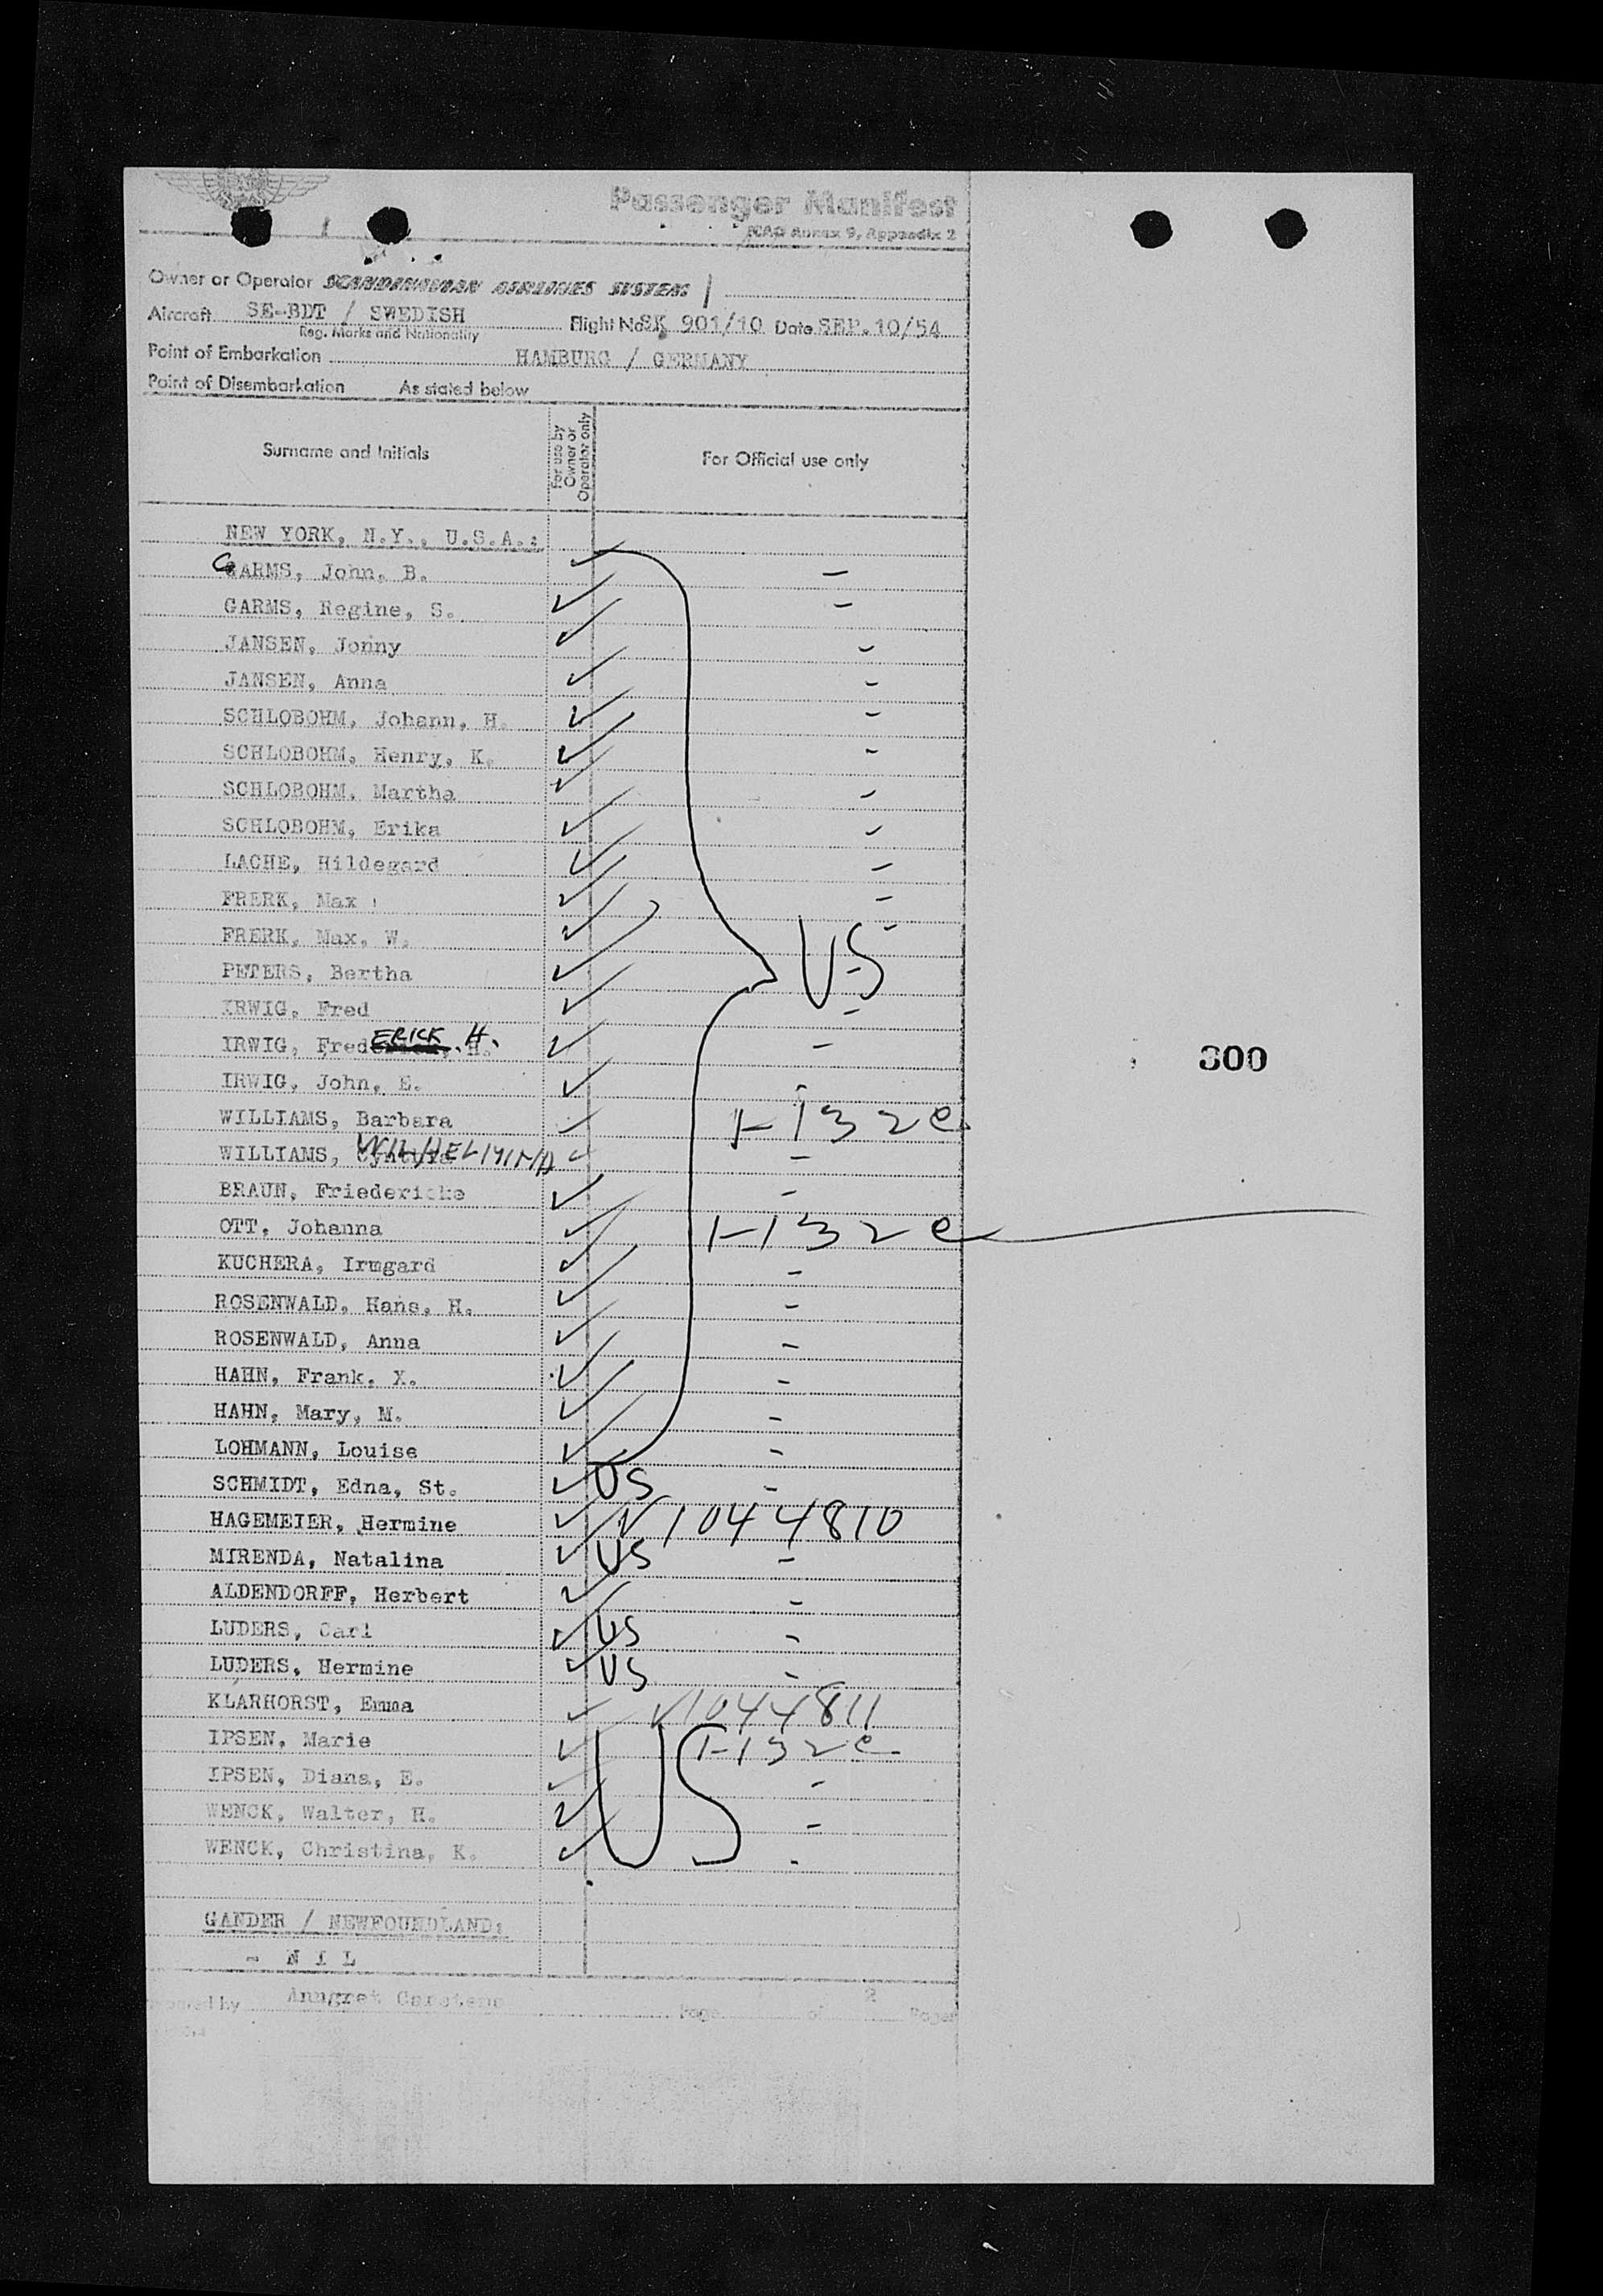 Passenger Manifest
ICAO Annex 9, Appendix 2
Owner or Operator SCANDINAVIAN AIRLINES SYSTEM
Aircraft SE-BDT / SWEDISH Flight No SK 901/10 Date SEP. 10/54
Reg. Marks and Nationality
Point of Embarkation HAMBURG / GERMANY
Point of Disembarkation As stated below
Surname and Initials For use by Owner or Operator only For Official use only
NEW YORK, N.Y., U.S.A.:
GARMS, John, B. ✓ -
GARMS, Regine, S. ✓ -
JANSEN, Jonny ✓ -
JANSEN, Anna ✓ -
SCHLOBOHM, Johann, H. ✓ -
SCHLOBOHM, Henry, K. ✓ -
SCHLOBOHM, Martha ✓ -
SCHLOBOHM, Erika ✓ -
LACHE, Hildegard ✓ -
FRERK, Max ✓ -
FRERK, Max, W. ✓ -
PETERS, Bertha ✓ US -
IRWIG, Fred ✓ -
IRWIG, Fred ERICK. H. ✓ -
300
IRWIG, John, E. ✓ -
WILLIAMS, Barbara ✓ I-132e
WILLIAMS, WILHELMINA ✓ -
BRAUN, Friedericke ✓ -
OTT, Johanna ✓ I-132e
KUCHERA, Irmgard ✓ -
ROSENWALD, Hans, H. ✓ -
ROSENWALD, Anna ✓ -
HAHN, Frank, X. ✓ -
HAHN, Mary, M. ✓ -
LOHMANN, Louise ✓ -
SCHMIDT, Edna, St. ✓ US -
HAGEMEIER, Hermine ✓ V1044810
MIRENDA, Natalina ✓ US -
ALDENDORFF, Herbert ✓ -
LUDERS, Carl ✓ US -
LUDERS, Hermine ✓ US -
KLARHORST, Emma ✓ V1044811
IPSEN, Marie ✓ I-132e
IPSEN, Diana, E. ✓ US -
WENCK, Walter, H. ✓ -
WENCK, Christina, K. ✓ -
GANDER / NEWFOUNDLAND:
- N I L
by Anngret Carstens Page of 2 Pages